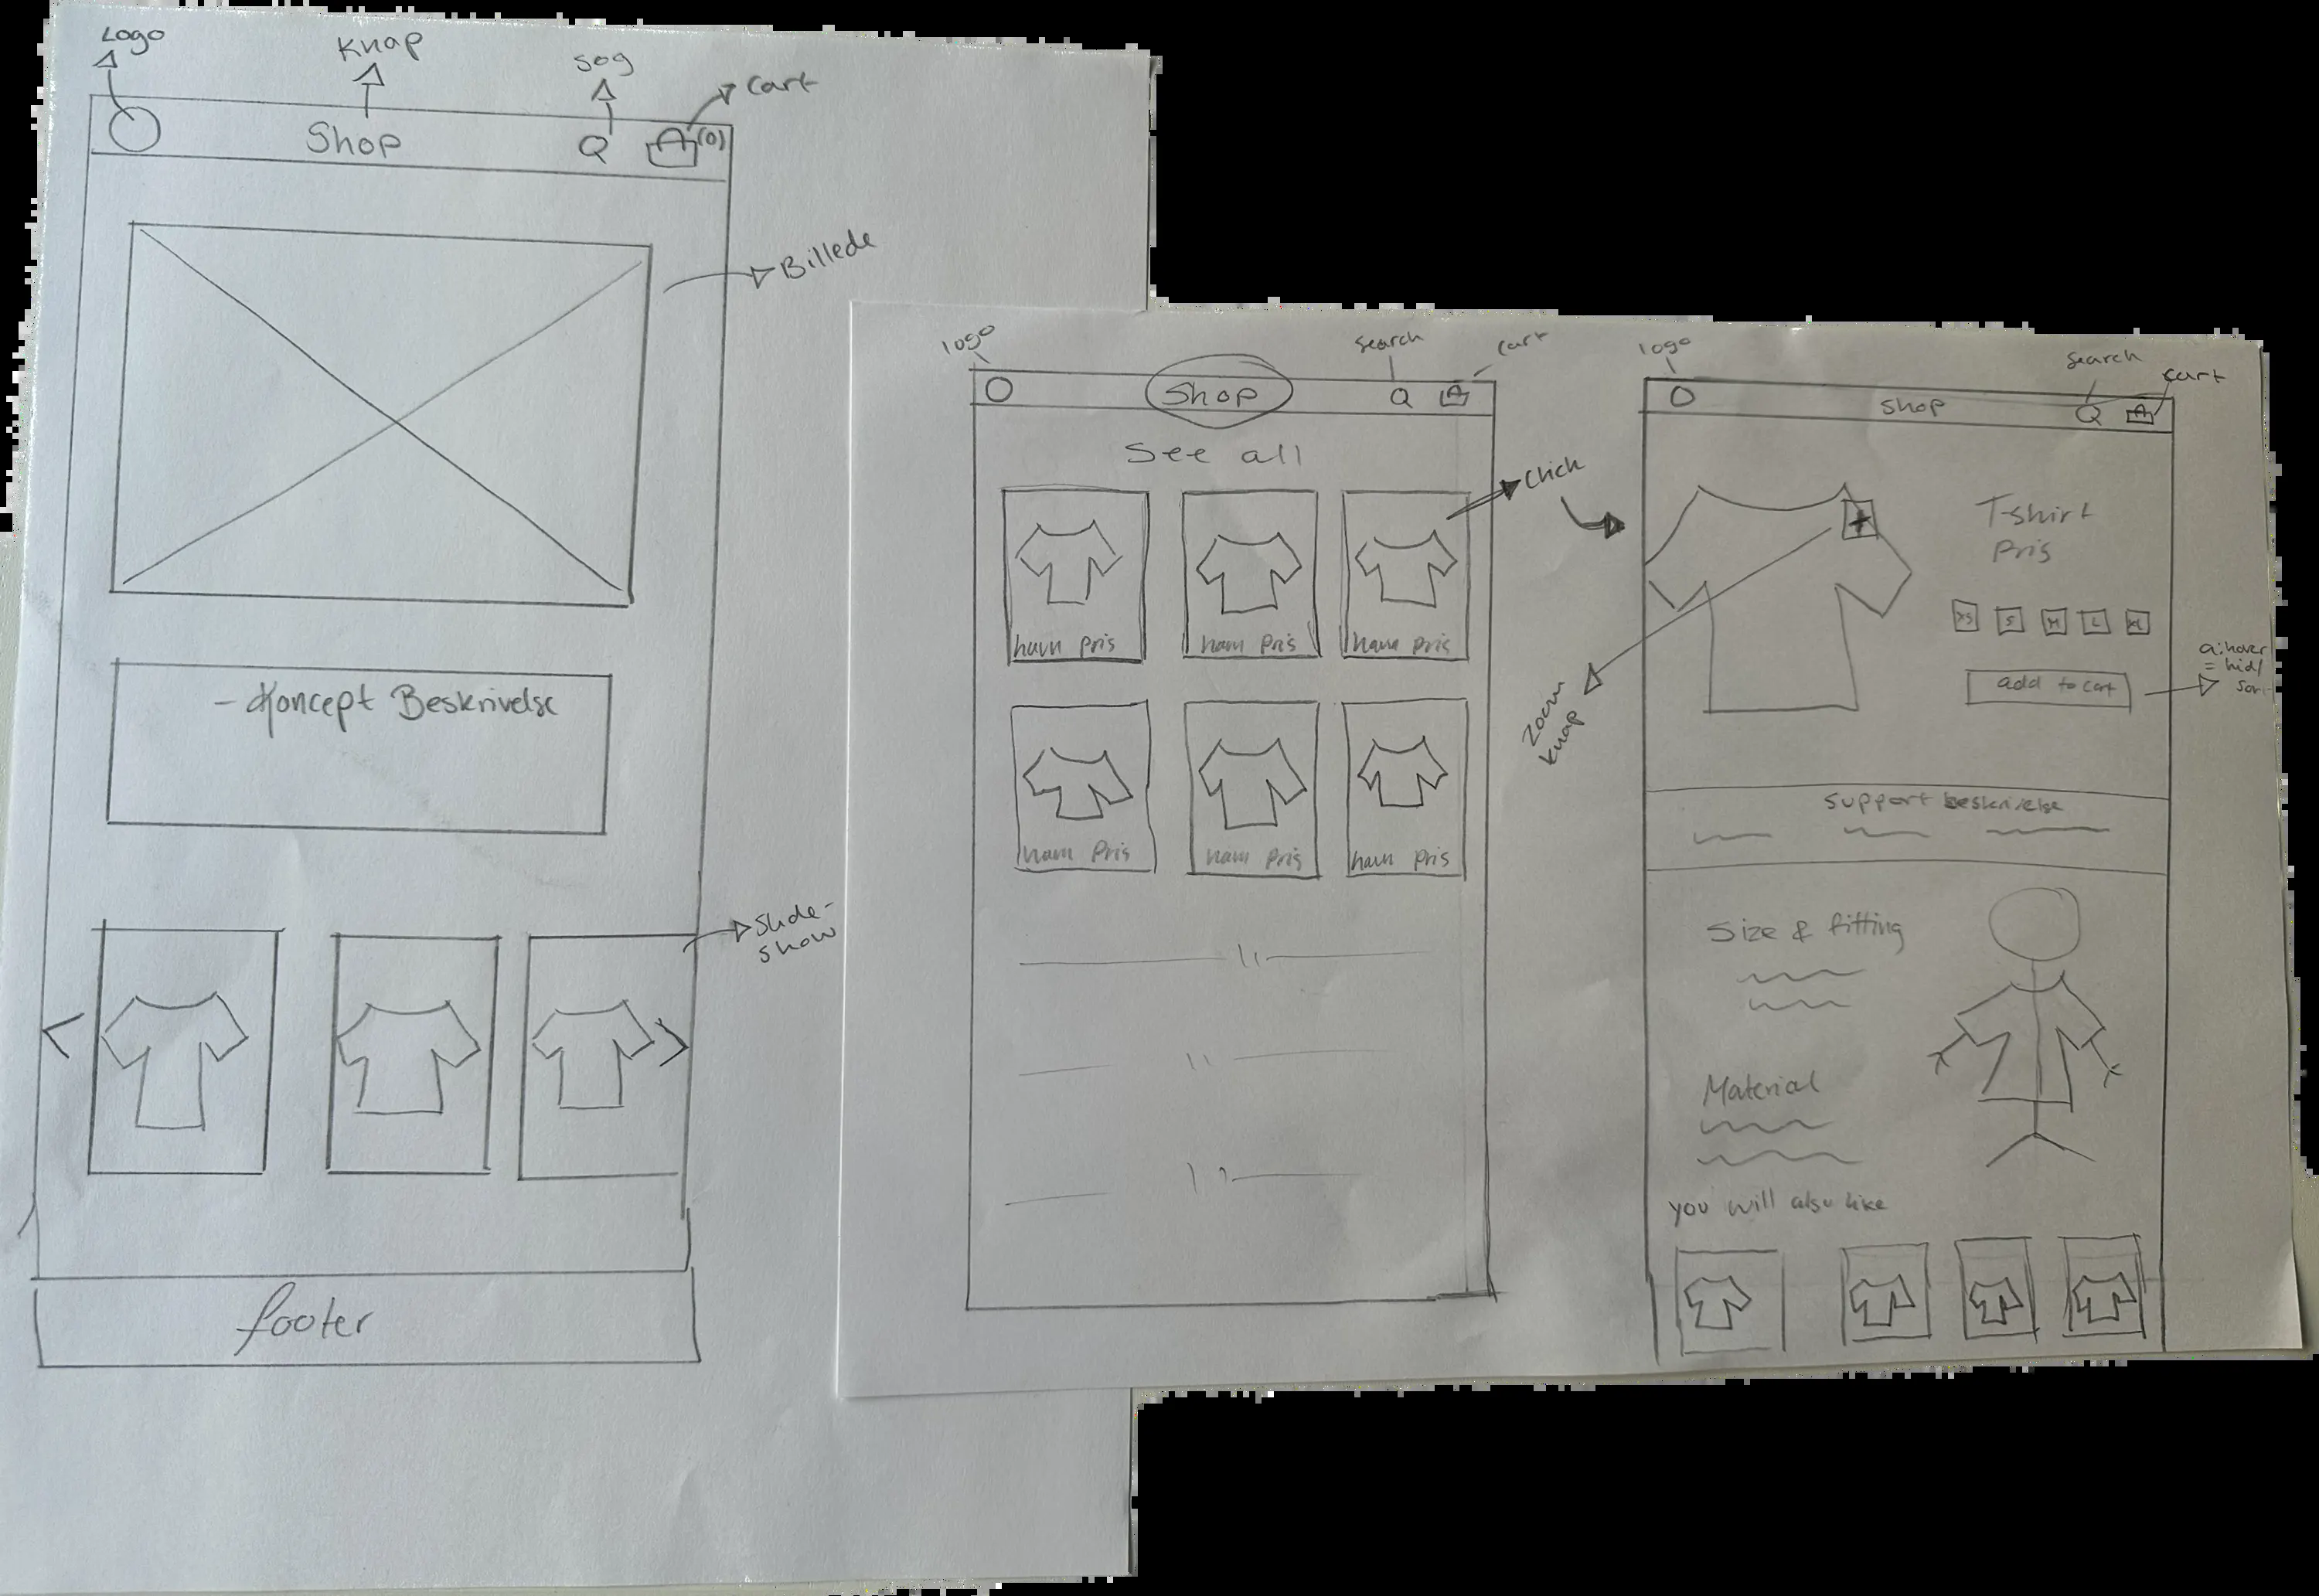 Logo
Knap
Søg
Cart
Shop
(0)
Billede
- Koncept Beskrivelse
Slide-
show
footer
logo
search
cart
Shop
See all
Click
navn pris
navn pris
navn pris
navn pris
navn pris
navn pris
logo
Search
cart
shop
T-shirt
pris
XS S M L XL
add to cart
a:hover
= hid/
sort
Zoom
knap
support beskrivelse
Size & fitting
Material
you will also like